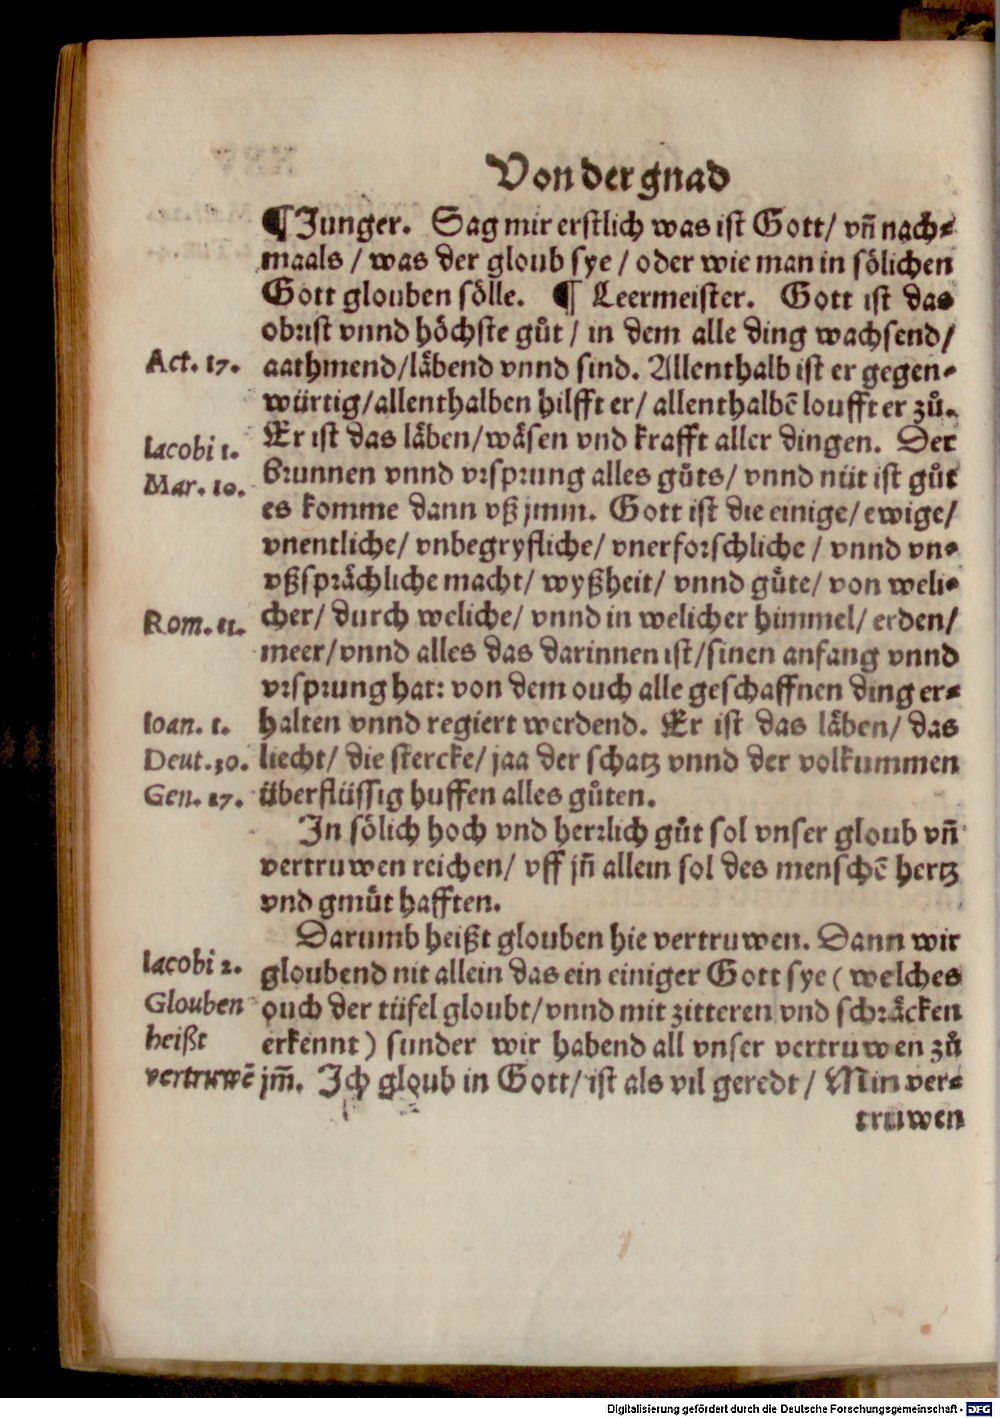 Von der gnad
¶ Junger. Sag mir erstlich was ist Gott/ vn̄ nach⸗
maals / was der gloub sye / oder wie man in sölichen
Gott glouben sölle. ¶ Leermeister. Gott ist das
obrist vnnd höchste gůt / in dem alle ding wachsend/
Act. 17.
aathmend/läbend vnnd sind. Allenthalb ist er gegen⸗
würtig/allenthalben hilfft er/ allenthalbē loufft er zů.
Iacobi 1.
Er ist das läben/wäsen vnd krafft aller dingen. Der
Mar. 10.
brunnen vnnd vrsprung alles gůts/ vnnd nüt ist gůt
es komme dann vß jmm. Gott ist die einige/ ewige/
vnentliche/ vnbegryfliche/ vnerforschliche / vnnd vn⸗
vßsprächliche macht/ wyßheit/ vnnd gůte/ von weli⸗
Rom. 11.
cher/ durch weliche/ vnnd in welicher himmel/ erden/
meer/vnnd alles das darinnen ist/sinen anfang vnnd
vrsprung hat: von dem ouch alle geschaffnen ding er⸗
Ioan. 1.
halten vnnd regiert werdend. Er ist das läben/ das
Deut. 30.
liecht/ die stercke/ jaa der schatz vnnd der volkummen
Gen. 17.
überflüssig huffen alles gůten.
In sölich hoch vnd herrlich gůt sol vnser gloub vn̄
vertruwen reichen/ vff jn̄ allein sol des menschē hertz
vnd gmůt hafften.
Darumb heißt glouben hie vertruwen. Dann wir
Iacobi 2.
gloubend nit allein das ein einiger Gott sye ( welches
Glouben
ouch der tüfel gloubt/vnnd mit zitteren vnd schräcken
heißt
erkennt ) sunder wir habend all vnser vertruwen zů
vertruwē
jm̄. Ich gloub in Gott/ ist als vil geredt / Min ver⸗
truwen
Digitalisierung gefördert durch die Deutsche Forschungsgemeinschaft - DFG